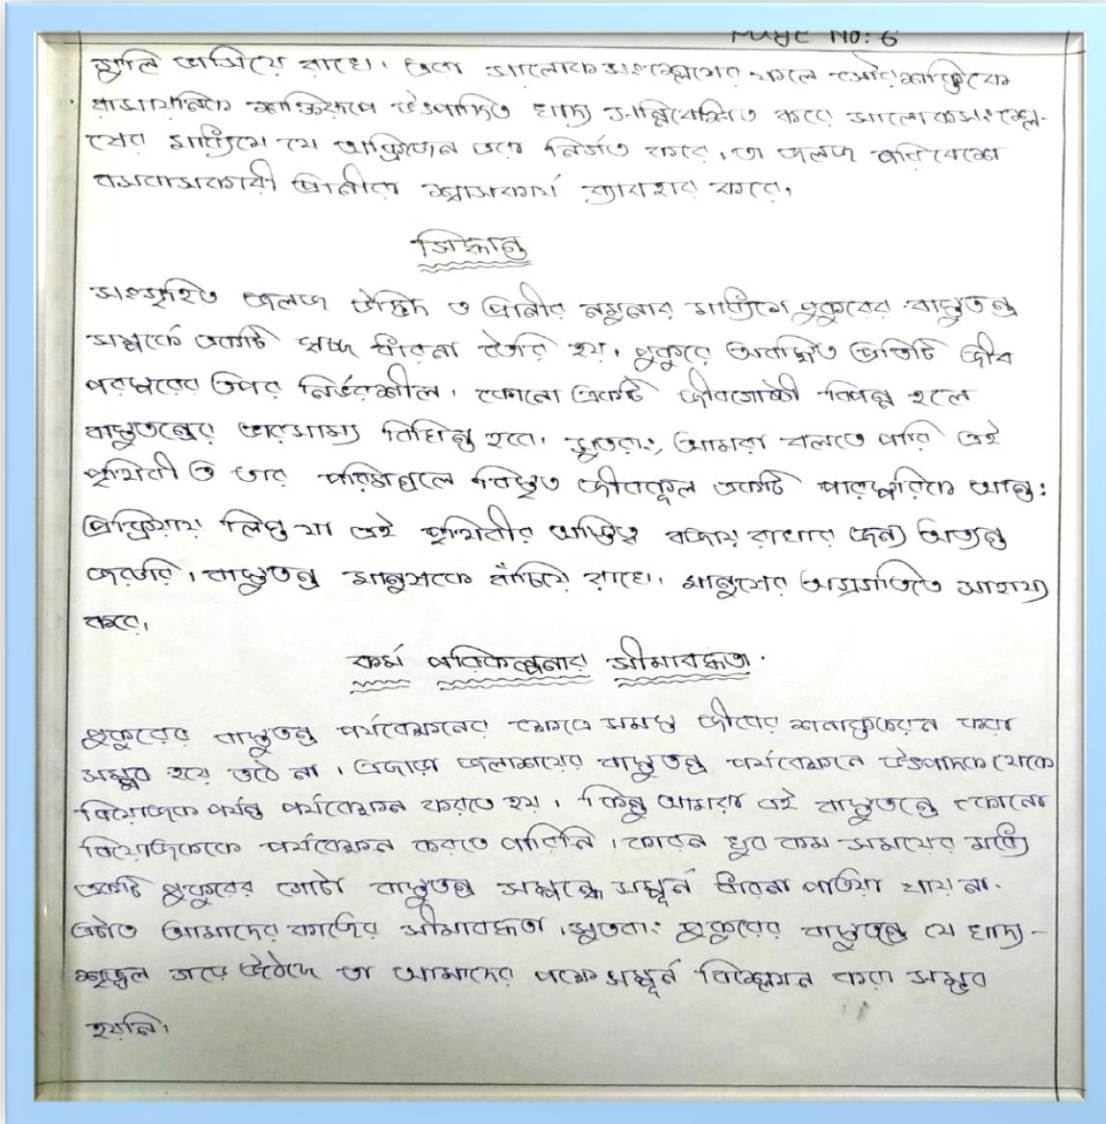 Page No: 6
গুলি ভাসিয়ে রাখে। এরা সালোকসংশ্লেষের ফলে সৌরশক্তিকে
রাসায়নিক শক্তিরূপে উৎপাদিত খাদ্যে সন্নিবেশিত করে সালোকসংশ্লে-
ষের মাধ্যমে যে অক্সিজেন এরা নির্গত করে, তা জলজ পরিবেশে
বসবাসকারী প্রানীরা শ্বাসকার্য ব্যাবহার করে,
সিদ্ধান্ত
সংগৃহিত জলজ উদ্ভিদ ও প্রানীর নমুনার মাধ্যিমে পুকুরের বাস্তুতন্ত্র
সম্পর্কে একটি স্বচ্ছ ধারনা তৈরি হয়, পুকুরে অবস্থিত প্রতিটি জীব
পরস্পরের উপর নির্ভরশীল। কোনো একটি জীবগোষ্ঠী বিপন্ন হলে
বাস্তুতন্ত্রের ভারসাম্য বিঘ্নিত হবে। সুতরাং, আমরা বলতে পারি এই
পৃথিবী ও তার পরিমন্ডলে বিস্তৃত জীবকূল একটি পারস্পরিক আন্ত:
প্রক্রিয়ায় লিপ্ত যা এই পৃথিবীর অস্তিত্ব বজায় রাখার জন্য অত্যন্ত
জরুরি। বাস্তুতন্ত্র মানুষকে বাঁচিয়ে রাখে। মানুষের অগ্রগতিতে সাহায্য
করে,
কর্ম পরিকল্পনার সীমাবদ্ধতা.
পুকুরের বাস্তুতন্ত্র পর্যবেক্ষনের ক্ষেত্রে সমস্ত জীবের শনাক্তকরন করা
সম্ভব হয়ে ওঠে না। এছাড়া জলাশয়ের বাস্তুতন্ত্র পর্যবেক্ষনে উৎপাদক থেকে
বিয়োজক পর্যন্ত পর্যবেক্ষন করতে হয়। কিন্তু আমরা এই বাস্তুতন্ত্রে কোনো
বিয়োজককে পর্যবেক্ষন করতে পারিনি। কারন খুব কম সময়ের মধ্যে
একটি পুকুরের গোটা বাস্তুতন্ত্র সম্বন্ধে সম্পূর্ন ধারনা পাওয়া যায় না.
এটাও আমাদের কাজের সীমাবদ্ধতা। সুতরাং পুকুরের বাস্তুতন্ত্রে যে খাদ্য-
শৃঙ্খল গড়ে উঠেছে তা আমাদের পক্ষে সম্পূর্ন বিশ্লেষন করা সম্ভব
হয়নি।